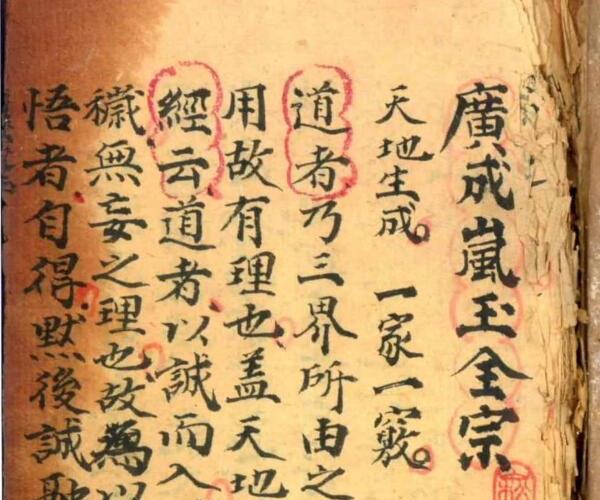 廣成嵐玉全宗
天地生成。一家一竅。
道者乃三界所由之
用故有理也盖天地
經云道者以誠而入
穢無妄之理也故為以
悟者自得黙後誠